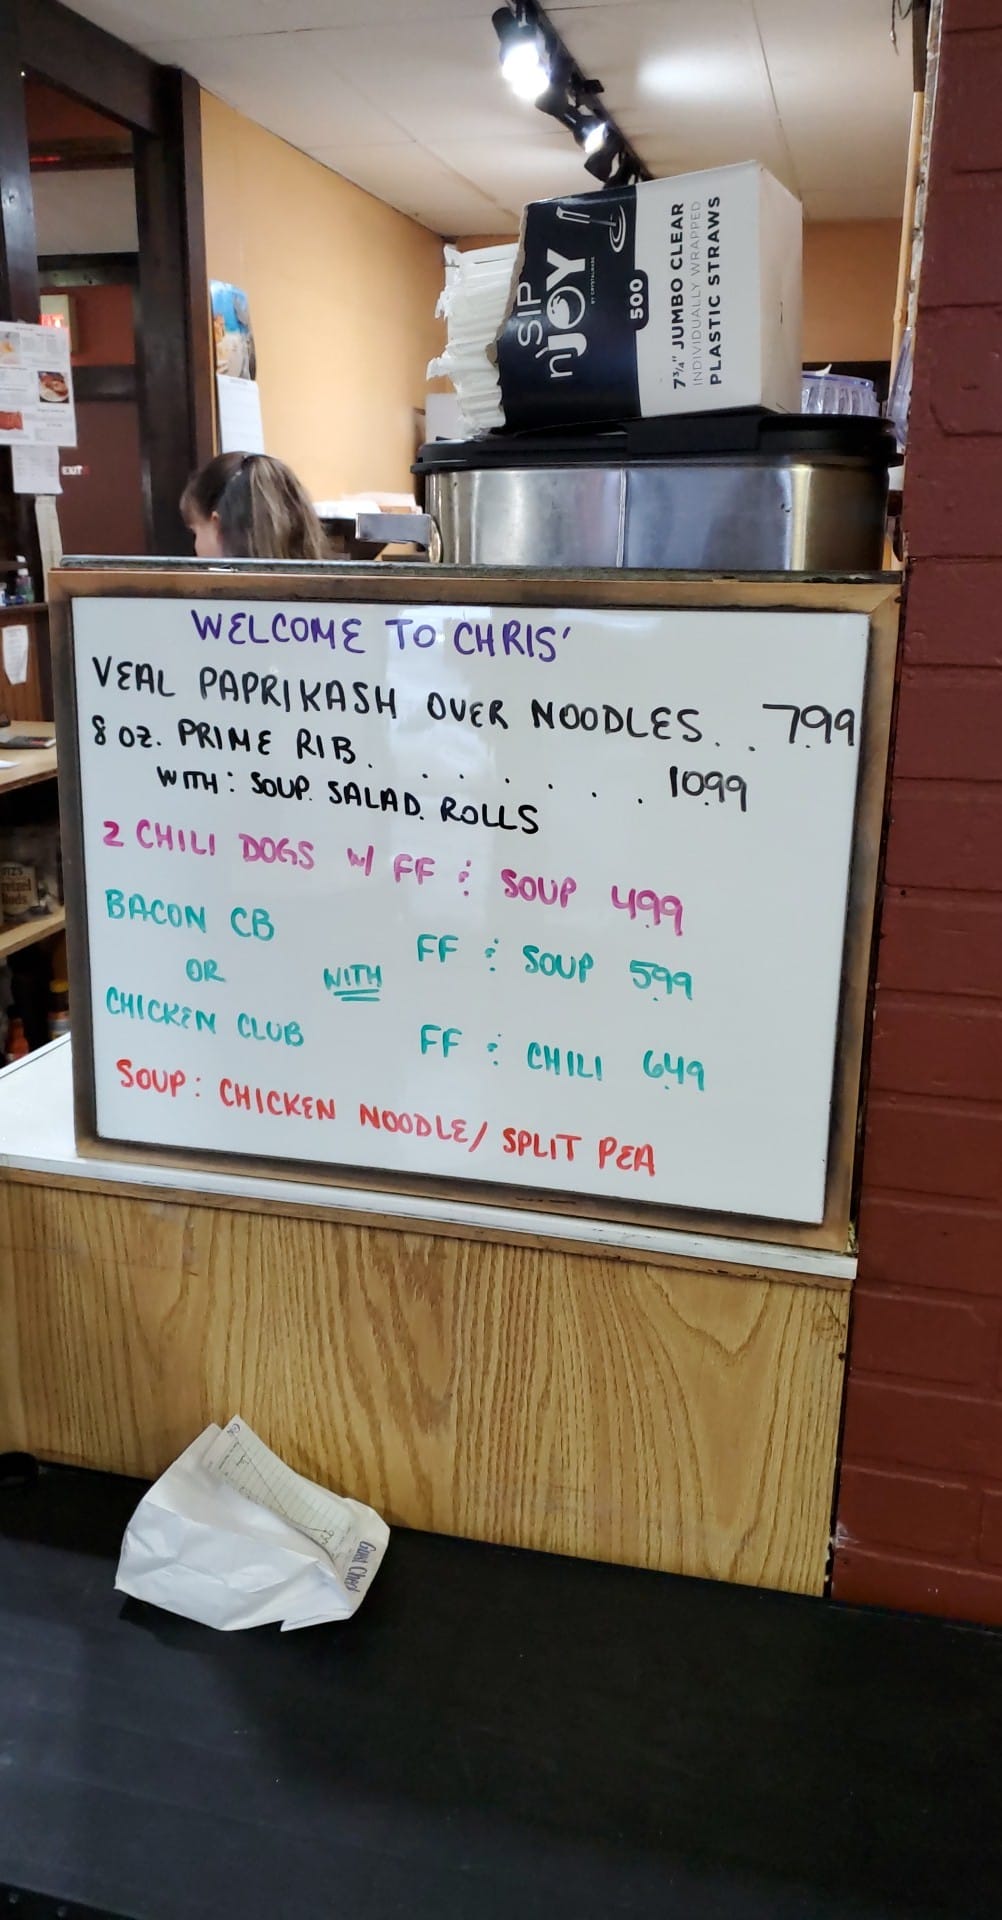 n'SIP
JOY
BY CRYSTALWARE
500
7 3/4" JUMBO CLEAR
INDIVIDUALLY WRAPPED
PLASTIC STRAWS
EXIT
WELCOME TO CHRIS'
VEAL PAPRIKASH OVER NOODLES . . 7.99
8 OZ. PRIME RIB . . . . . . . . 10.99
WITH: SOUP. SALAD. ROLLS
2 CHILI DOGS W/ FF & SOUP 4.99
BACON CB
FF & SOUP 5.99
OR WITH
CHICKEN CLUB
FF & CHILI 6.49
SOUP: CHICKEN NOODLE/ SPLIT PEA
Guest Check